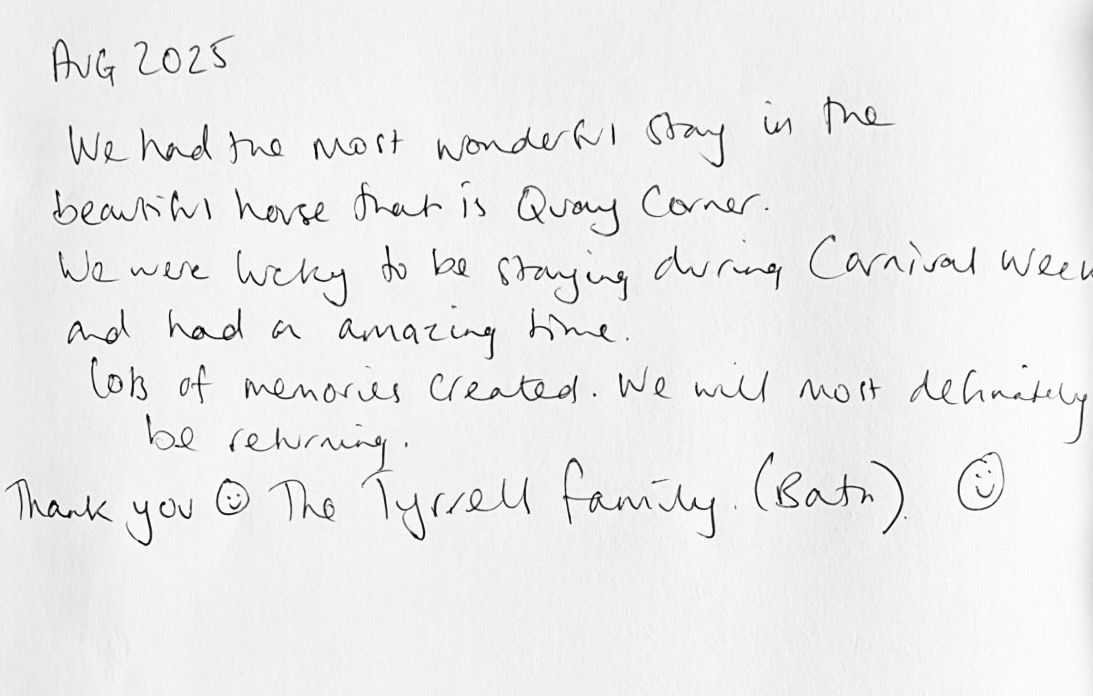 AUG 2025
We had the most wonderful stay in the
beautiful house that is Quay Corner.
We were lucky to be staying during Carnival Week
and had a amazing time.
Lots of memories created. We will most definately
be returning.
Thank you ☺ The Tyrrell family. (Bath). ☺